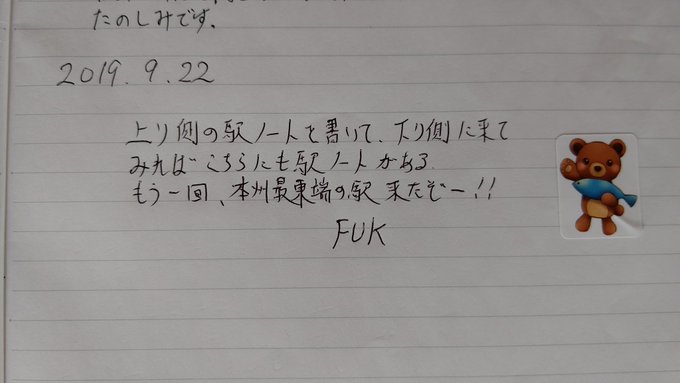 たのしみです.
2019.9.22
上り側の駅ノートを書いて、下り側に来て
みればこちらにも駅ノートがある
もう一回、本州最東端の駅 来たぞー!!
FUK